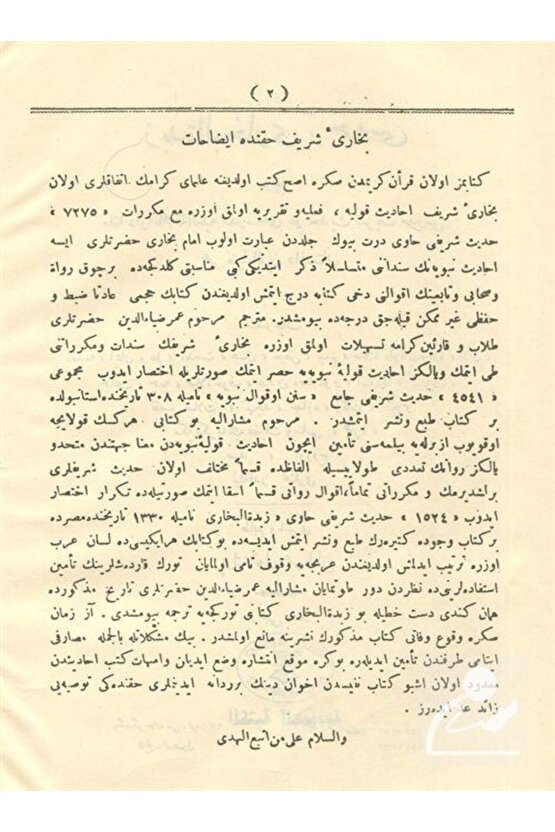 ( ٢ )
بخارئ شريف حقنده ايضاحات
كتابمز اولان قرآن كريمدن صكره اصح كتب اولديغنه علماى كرامك اتفاقلرى اولان
بخارئ شريف احاديث قوليه ، فعليه و تقريريه اولمق اوزره مع مكررات « ٧٢٧٥ »
حديث شريفى حاوى درت بيوك جلددن عبارت اولوب امام بخارى حضرتلرى ايسه
احاديث نبويه‌نك سنداتنى متسلسلاً ذكر ايتديكى كبى مناسبتى كلدكجه‌ده برچوق رواة
وصحابى وتابعينك اقوالنى دخى كتابه درج ايتمش اولديغندن كتابك حجمى عادتا ضبط و
حفظى غير ممكن قيله‌جق درجه‌ده بيومشدر. مترجم مرحوم عمر ضياءالدين حضرتلرى
طلاب و قارئين كرامه تسهيلات اولمق اوزره بخارئ شريفك سندات ومكرراتنى
طى ايتمك ويالكز احاديث قولية نبويه‌يه حصر ايتمك صورتلريله اختصار ايدوب مجموعى
« ٤٥٤١ » حديث شريفى جامع « سنن اوقوال نبويه » ناميله ٣٠٨ تاريخنده استانبولده
بر كتاب طبع ونشر ايتمشدر . مرحوم مشاراليه بو كتابى هركسك قولايجه
اوقويوب ازبرله‌يه بيلمه‌سنى تأمين ايچون احاديث قولية نبويه‌دن معنا جهتندن متحدو
يالكز رواتك تعددى طولاييسيله الفاظده قسماً مختلف اولان حديث شريفلرى
براشديرمك و مكرراتى تماماً، اقوال رواتى قسماً اسقا ايتمك صورتيله‌ده تكرار اختصار
ايدوب « ١٥٢٤ » حديث شريفى حاوى « زبدة البخارى ناميله ١٣٣٠ تاريخنده مصرده
بر كتاب وجوده كتيره‌رك طبع ونشر ايتمش ايديسه‌ده بو كتابك هرايكيسى‌ده لسان عرب
اوزره ترتيب ايدلمش اولديغندن عربجه‌يه وقوف تامى اولمايان تورك قارده‌شلرينك تأمين
استفاده‌لرينى‌ده نظردن دور طوتمايان مشاراليه عمر ضياءالدين حضرتلرى تاريخ مذكورده
همان كندى دست خطيله بو زبدة البخارى كتابنى توركجه‌يه ترجمه بيومشدى . آز زمان
صكره وقوع وفاتى كتاب مذكورك نشرينه مانع اولمشدر . بيك مشكلاتله بالجمله مصارفى
ايتامى طرفندن تأمين ايديله‌ره بو كره موقع انتشاره وضع ايديان وامهات كتب احاديثدن
معدود اولان اشبو كتاب نفيسدن اخوان دينك بردانه ايدينملرى حقنده‌كى توصيه‌يى
زائد عد ايده‌رز .
والسلام على من اتبع الهدى